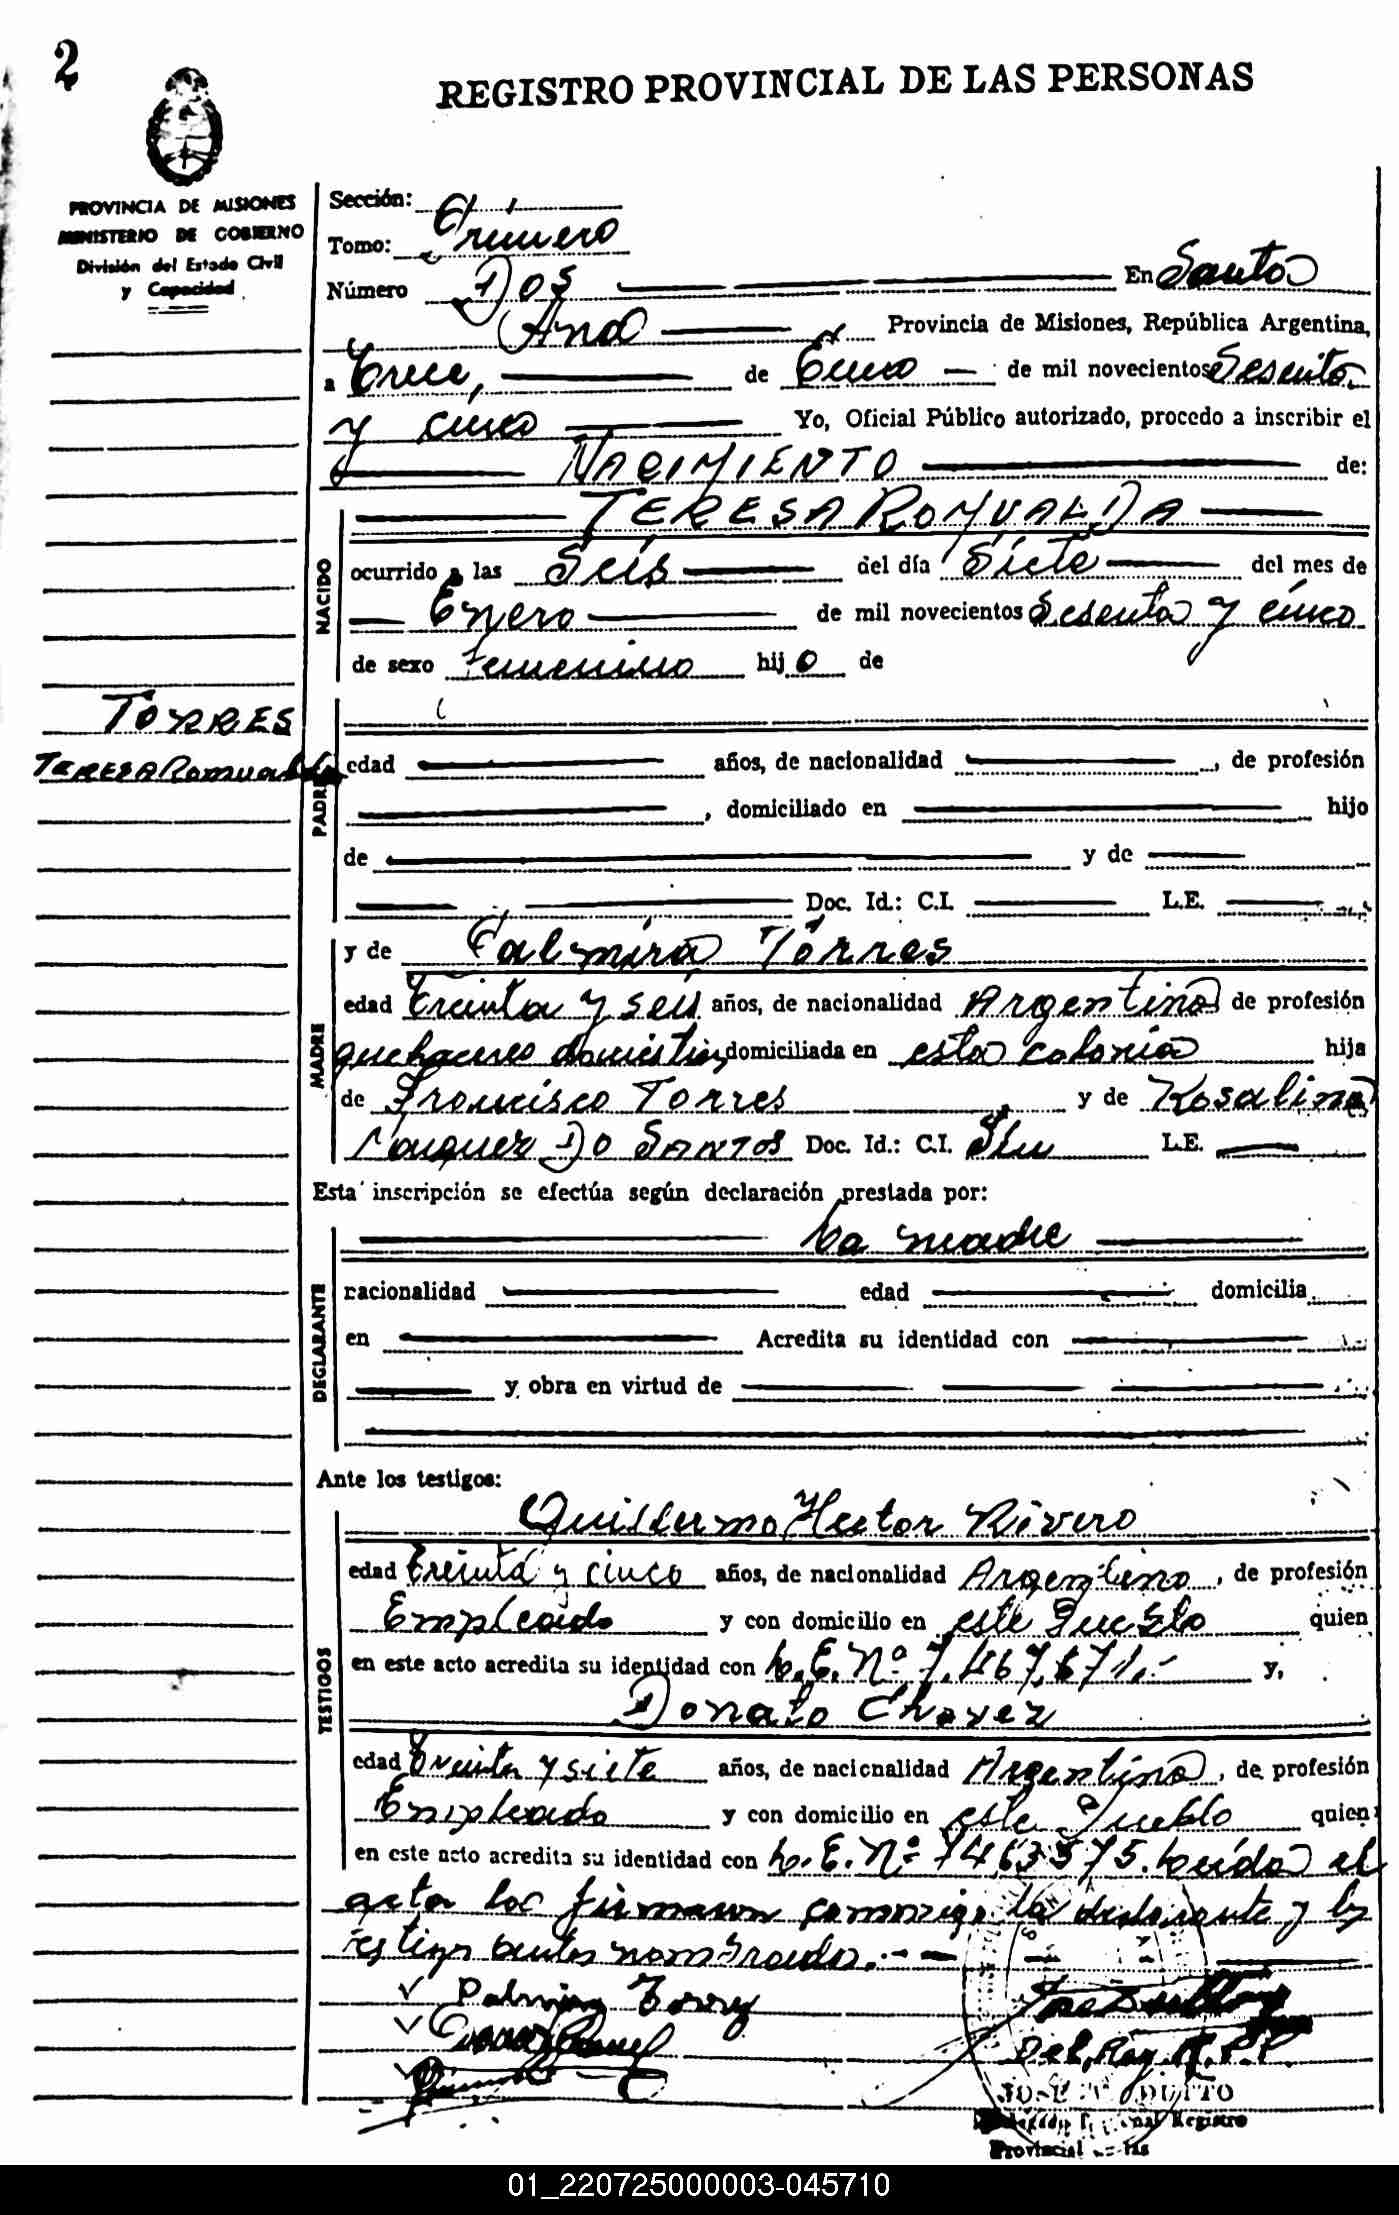 2
REGISTRO PROVINCIAL DE LAS PERSONAS
PROVINCIA DE MISIONES
MINISTERIO DE GOBIERNO
División del Estado Civil
y Capacidad
Sección:
Tomo: Primero
Número Dos En Santa
Ana Provincia de Misiones, República Argentina,
a Trece, de Enero de mil novecientos Sesenta
y cinco Yo, Oficial Público autorizado, procedo a inscribir el
NACIMIENTO de:
TERESA ROMUALDA
NACIDO
ocurrido a las Seis del día Siete del mes de
Enero de mil novecientos Sesenta y cinco
de sexo femenino hijo de
TORRES
TERESA Romualda
PADRE
edad años, de nacionalidad , de profesión
, domiciliado en hijo
de y de
Doc. Id.: C.I. L.E.
MADRE
y de Palmira Torres
edad Treinta y seis años, de nacionalidad Argentina de profesión
quehaceres domésticos, domiciliada en esta colonia hija
de Francisco Torres y de Rosalina
DO SANTOS Doc. Id.: C.I. Sin L.E.
Esta inscripción se efectúa según declaración prestada por:
La madre
DECLARANTE
nacionalidad edad domicilia
en Acredita su identidad con
y obra en virtud de
Ante los testigos:
TESTIGOS
Guillermo Hector Rivero
edad Treinta y cinco años, de nacionalidad Argentino, de profesión
Empleado y con domicilio en este Pueblo quien
en este acto acredita su identidad con L.E. Nº 7.467.671.- y,
Donato Chavez
edad Treinta y siete años, de nacionalidad Argentina, de profesión
Empleado y con domicilio en este Pueblo quien
en este acto acredita su identidad con L.E. Nº 7463575. Leída el
acta la firman conmigo la declarante y los
testigos antes nombrados.-
Palmira Torres
Del. Reg. P.P.
JOSE
Registro
Provincial
01_220725000003-045710